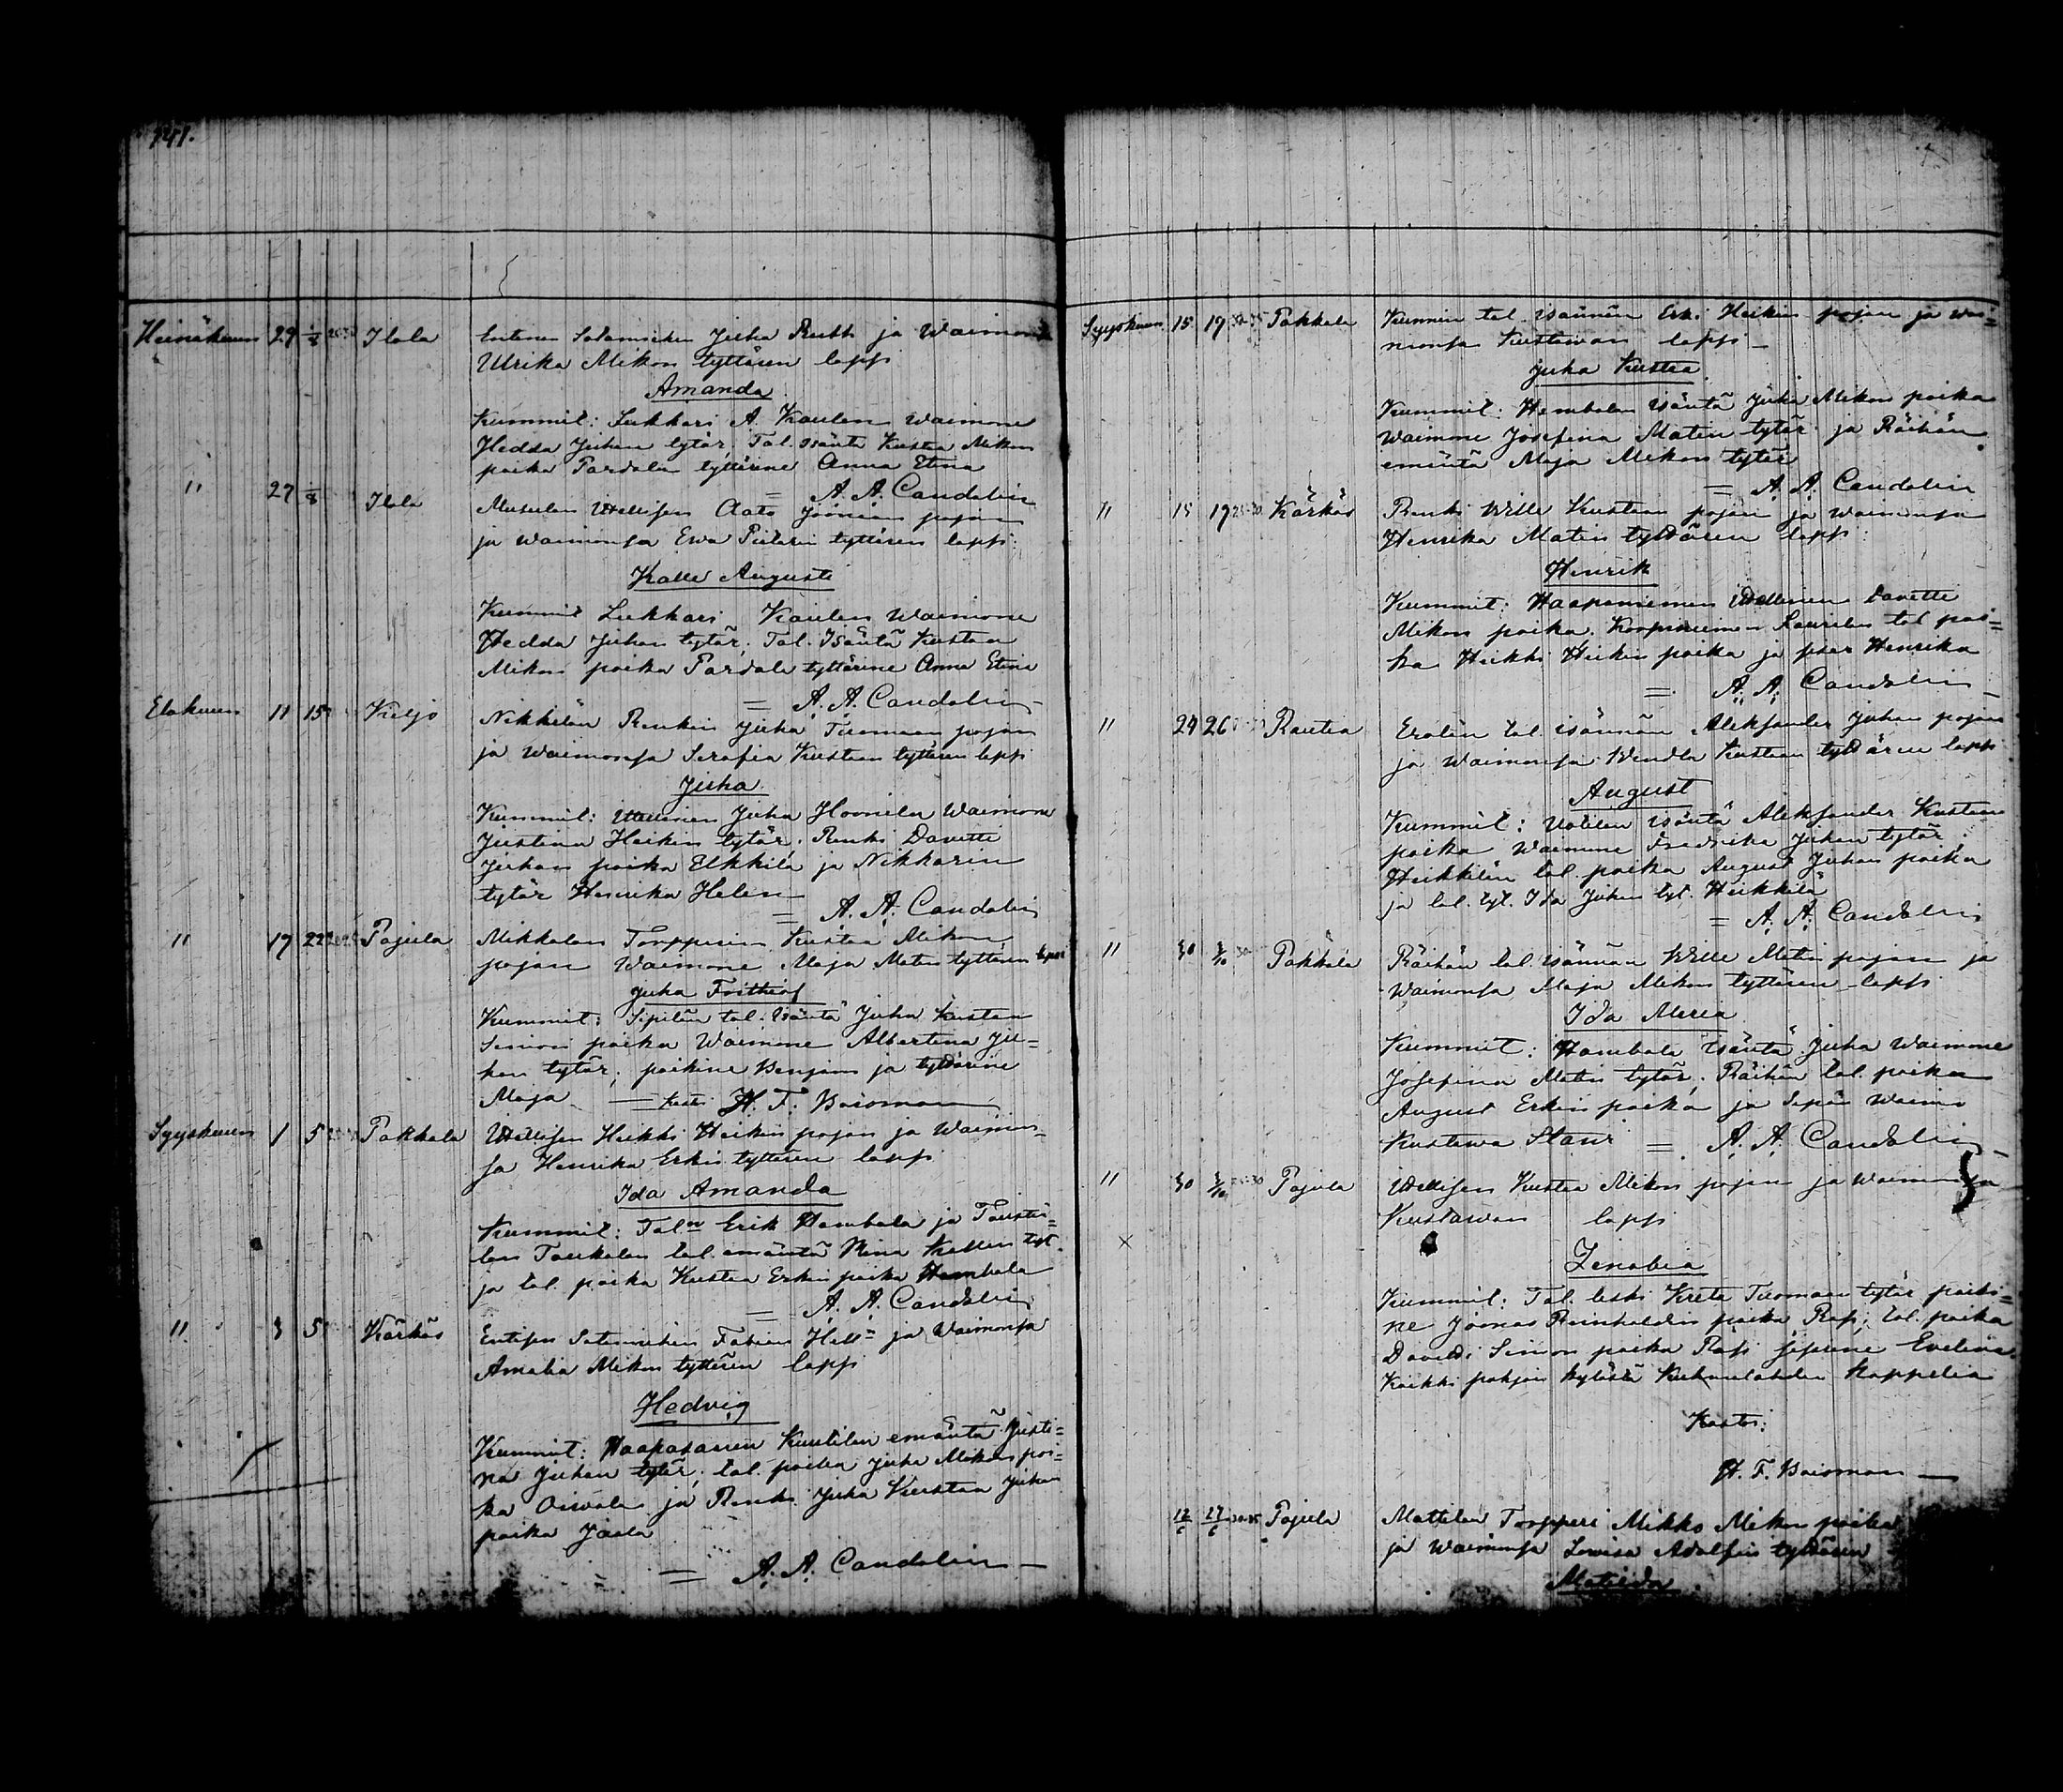 141.
Heinäkuun 29 1/8 Ilola Entinen Sotamiehen Juha Ruth ja Waimonsa
Ulrika Mikon tyttären lapsi
Amanda
Kummit: Lukkari A. Kaulen Waimone
Hedda Juhan tytär, Tal. Isäntä Kustaa Mikon
poika Pardalan tyttärine Anna Stina
= A. A. Candolin
" 27 1/8 Ilola Itsellisen Aato Joonaan pojan
ja waimonsa Ewa Pietarin tyttären lapsi:
Kalle Auguste
Kummit Lukkari Kaulen Waimone
Hedda Juhan tytär, Tal. Isäntä Kustaa
Mikon poika Pardala tyttärine Anna Stina
= A. A. Candolin
Elokuun 11 15 Keljo Nikkilän Renkin Juha Tuomaan pojan
ja Waimonsa Serafia Kustaan tyttären lapsi
Juha
Kummit: Itsellinen Juha Hoonila Waimone
Justina Heikin tytär, Renki Davette
Juhan poika Elkkilä ja Nikkarin
tytär Henrika Helen
= A. A. Candolin
" 17 22 Pajula Mikkolan Torpparin Kustaa Mikon
pojan Waimone Maja Matin tyttären lapsi
Juha Frithiof
Kummit: Sipilän tal. Isäntä Juha Kustaa
Simon poika Waimone Albertina Ju=
han tytär, poikine Benjam ja tyttärine
Maja = Kasti H. F. Boisman
Syyskuun 1 5 Pakkala Itsellisen Heikki Heikin pojan ja Waimon=
sa Henrika Erkin tyttären lapsi
Ida Amanda
Kummit: Tal:n Erik Hambala ja Tousti=
lan Toukolan tal. emäntä Stina Kallen tyt.
ja tal. poika Kustaa Erkin poika Hambala
= A. A. Candolin
" 3 5 Kärkäs Entisen Sotamiehen Fabian Hell ja Waimonsa
Amalia Mikon tyttären lapsi
Hedvig
Kummit: Haapasaaren Kuutilan emäntä Justi=
na Juhan tytär, tal. poika Juha Mikon poi=
ka Oiwala ja Renki Juha Kustaa Juhan
poika Jaala
= A. A. Candolin
Syyskuun 15 19 Pakkala Kunnin tal. isännän Erki Heikin pojan ja wai=
monsa Kustawan lapsi
Juha Kustaa
Kummit: Hambalan Isäntä Juha Mikon poika
Waimone Josefina Matin tytär ja Räihän
emäntä Maja Mikon tytär
= A. A. Candolin
" 15 19 25-30 Kärkäs Renki Wille Kustaan pojan ja waimonsa
Henrika Matin tyttären lapsi:
Henrik
Kummit: Haapaniemen Itsellinen Davette
Mikon poika. Laurilan tal. poi=
ka Heikki Heikin poika ja Henrika
= A. A. Candolin
" 24 26 Rautia Erolin tal. isännän Aleksander Juhan pojan
ja Waimonsa Wendla Kustaan tyttären lapsi
August
Kummit: isäntä Aleksander Kustaan
poika Waimone Fredrika Juhan tytär,
Heikkilän tal. poika August Juhan poika
ja tal. tyt. Ida Juhan tyt. Heikkilä
= A. A. Candolin
" 30 3/10 Pakkala Räihän tal. isännän Wille Matin pojan ja
Waimonsa Maja Mikon tyttären lapsi
Ida Maria
Kummit: Hambala isäntä Juha Waimone
Josefina Matin tytär, Räihän tal. poika
August Erkin poika ja Sepän Waimo
Kustawa Starr = A. A. Candolin
" 30 3/10 Pajula Itsellisen Kustaa Mikon pojan ja Waimonsa
Kustawan lapsi
Zenobia
Kummit: Tal. leski Kreta Tuomaan tytär poiki=
ne Joonas Reinholdin poika Rasi, tal. poika
Davidi Simon poika Rasi Evelina
Kaikki pohjois kylästä Kuhmalahden Kappelia
Kastoi:
H. F. Boisman
12/6 27/6 30-35 Pajula Mattilan Torppari Mikko Mikon poika
ja Waimonsa Lowisa Adolfin tyttären
Matilda